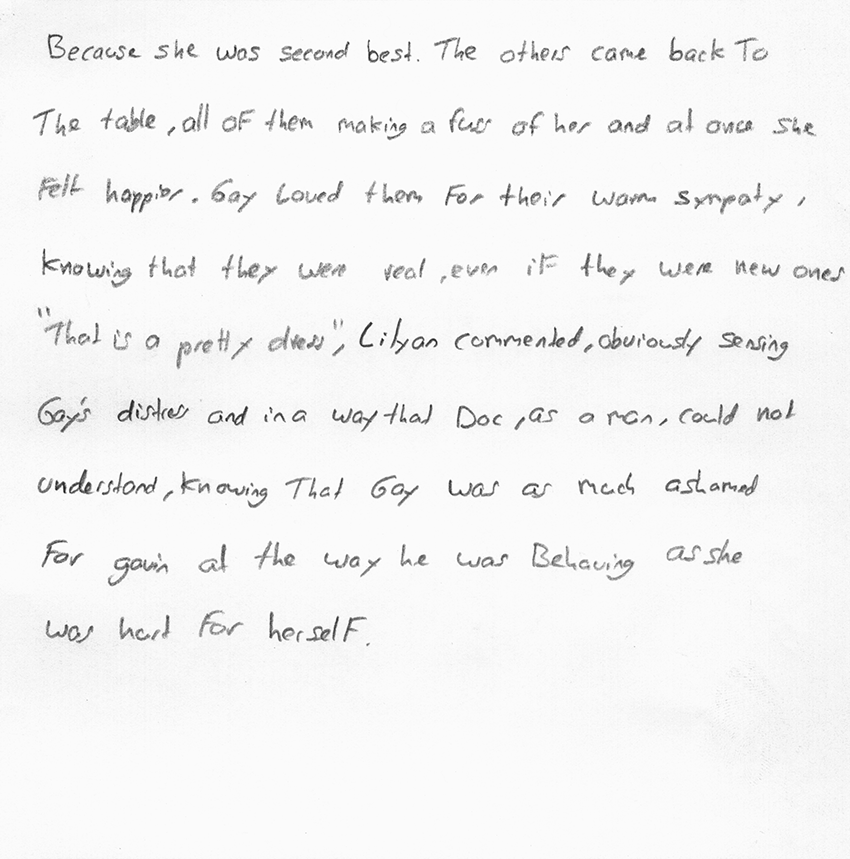 Because she was second best. The others came back To
The table, all of them making a fuss of her and at once she
Felt happier. Gay Loved them For their warm sympaty,
knowing that they were real, even if they were new ones
"That is a pretty dress", Lilyan commented, obviously sensing
Gay's distress and in a way that Doc, as a man, could not
understand, knowing That Gay was as much ashamed
For gavin at the way he was Behaving as she
was hart For herself.